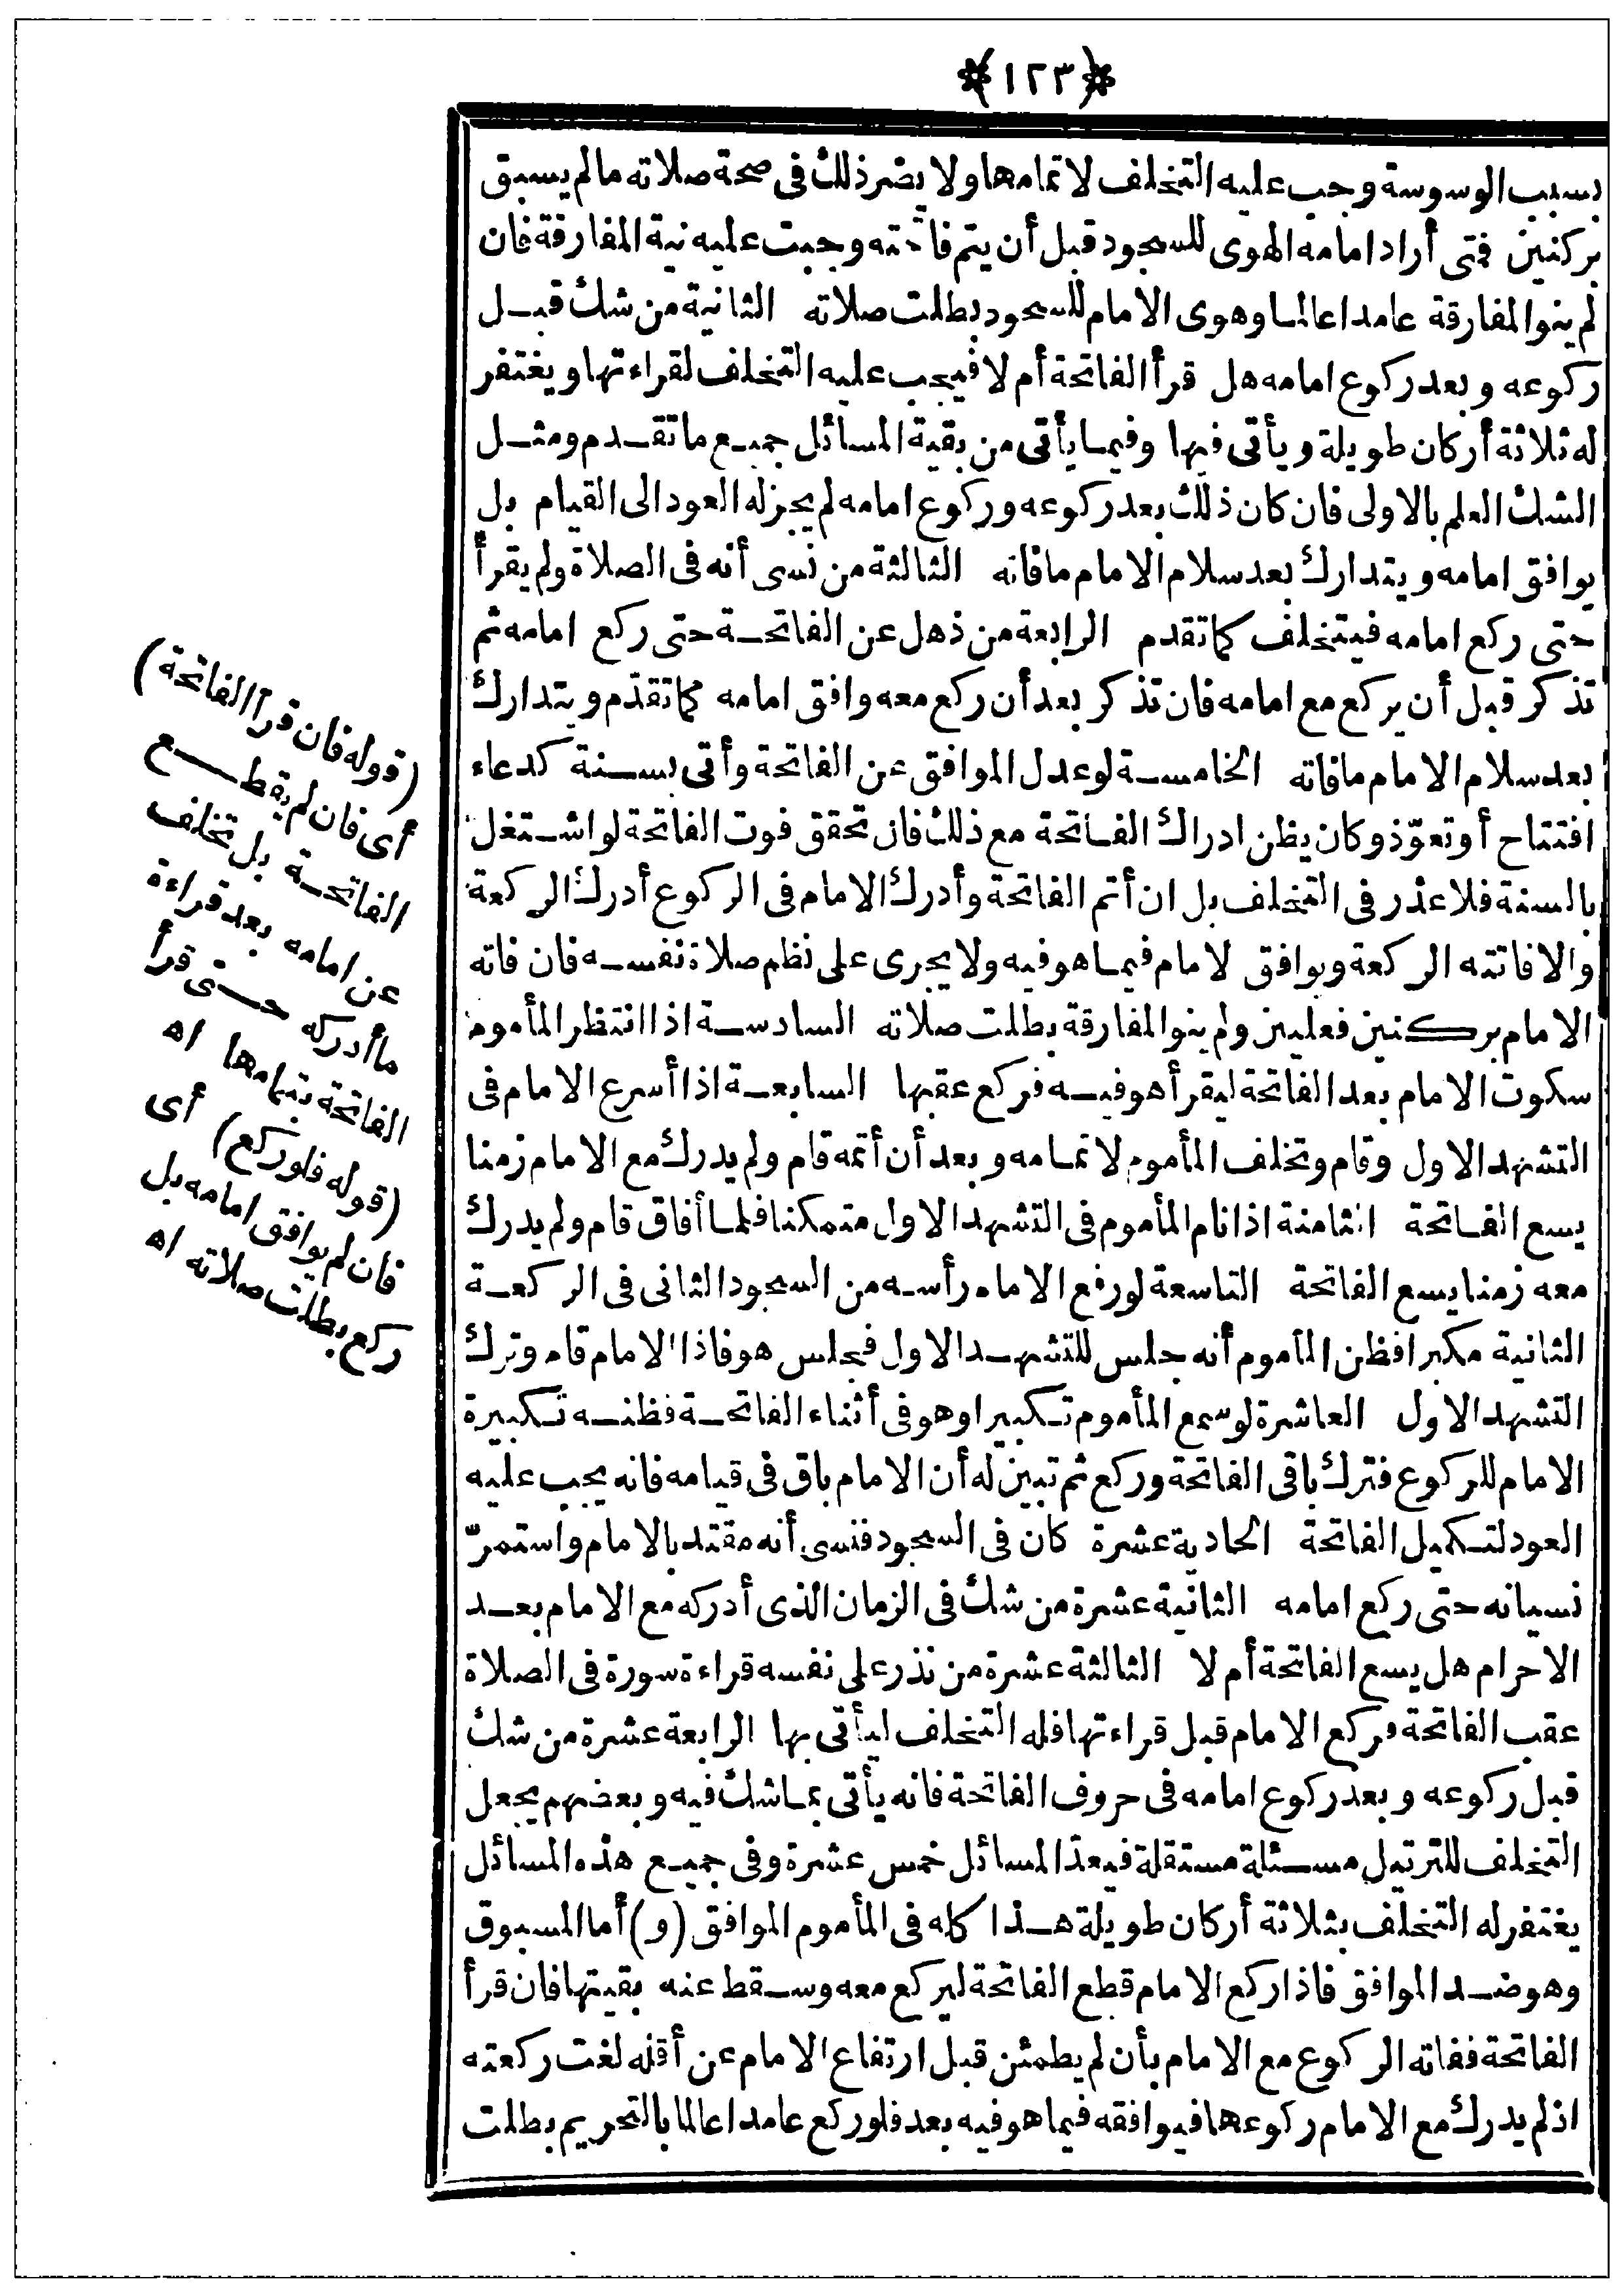 ﴿١٢٣﴾
بسبب الوسوسة وجب عليه التخلف لاتمامها ولا يضر ذلك فى صحة صلاته ما لم يسبق
بركنين فتى أراد امامه الهوى للسجود قبل أن يتم فاتحته وجبت عليه نية المفارقة فان
لم ينو المفارقة عامدا عالما وهوى الامام للسجود بطلت صلاته الثانية من شك قبل
ركوعه وبعد ركوع امامه هل قرأ الفاتحة أم لا فيجب عليه التخلف لقراءتها ويغتفر
له ثلاثة أركان طويلة ويأتى فيها وفيما يأتى من بقية المسائل جميع ما تقدم ومثل
الشك العلم بالاولى فان كان ذلك بعد ركوعه وركوع امامه لم يجز له العود الى القيام بل
يوافق امامه ويتدارك بعد سلام الامام ما فاته الثالثة من نسى أنه فى الصلاة ولم يقرأ
حتى ركع امامه فيتخلف كما تقدم الرابعة من ذهل عن الفاتحة حتى ركع امامه ثم
تذكر قبل أن يركع مع امامه فان تذكر بعد أن ركع معه وافق امامه كما تقدّم ويتدارك
بعد سلام الامام ما فاته الخامسة لو عدل الموافق عن الفاتحة وأتى بسنة كدعاء
افتتاح أو تعوّذ وكان يظن ادراك الفاتحة مع ذلك فان تحقق فوت الفاتحة لو اشتغل
بالسنة فلا عذر فى التخلف بل ان أتم الفاتحة وأدرك الامام فى الركوع أدرك الركعة
والا فاتته الركعة ويوافق لامام فيما هو فيه ولا يجرى على نظم صلاة نفسه فان فاته
الامام بركنين فعليين ولم ينو المفارقة بطلت صلاته السادسة اذا انتظر المأموم
سكوت الامام بعد الفاتحة ليقرأ هو فيه فركع عقبها السابعة اذا أسرع الامام فى
التشهد الاول وقام وتخلف المأموم لاتمامه وبعد أن أتمه قام ولم يدرك مع الامام زمنا
يسع الفاتحة الثامنة اذا نام المأموم فى التشهد الاول متمكنا فلما أفاق قام ولم يدرك
معه زمنا يسع الفاتحة التاسعة لو رفع الامام رأسه من السجود الثانى فى الركعة
الثانية مكبرا فظن المأموم أنه جلس للتشهد الاول فجلس هو فاذا الامام قام وترك
التشهد الاول العاشرة لو سمع المأموم تكبيرا وهو فى أثناء الفاتحة فظنه تكبيرة
الامام للركوع فترك باقى الفاتحة وركع ثم تبين له أن الامام باق فى قيامه فانه يجب عليه
العود لتكميل الفاتحة الحادية عشرة كان فى السجود فنسى أنه مقتد بالامام واستمرّ
نسيانه حتى ركع امامه الثانية عشرة من شك فى الزمان الذى أدركه مع الامام بعد
الاحرام هل يسع الفاتحة أم لا الثالثة عشرة من نذر على نفسه قراءة سورة فى الصلاة
عقب الفاتحة فركع الامام قبل قراءتها فله التخلف ليأتى بها الرابعة عشرة من شك
قبل ركوعه وبعد ركوع امامه فى حروف الفاتحة فانه يأتى بما شك فيه وبعضهم يجعل
التخلف للترتيل مسئلة مستقلة فيعدّ المسائل خمس عشرة وفى جميع هذه المسائل
يغتفر له التخلف بثلاثة أركان طويلة هذا كله فى المأموم الموافق (و) أما المسبوق
وهو ضد الموافق فاذا ركع الامام قطع الفاتحة ليركع معه وسقط عنه بقيتها فان قرأ
الفاتحة ففاته الركوع مع الامام بأن لم يطمئن قبل ارتفاع الامام عن أقله لغت ركعته
اذ لم يدرك مع الامام ركوعها فيوافقه فيما هو فيه بعد فلو ركع عامدا عالما بالتحريم بطلت
(قوله فان قرأ الفاتحة)
أى فان لم يقطع
الفاتحة بل تخلف
عن امامه بعد قراءة
ما أدركه حتى قرأ
الفاتحة بتمامها اه
(قوله فلو ركع) أى
فان لم يوافق امامه بل
ركع بطلت صلاته اه